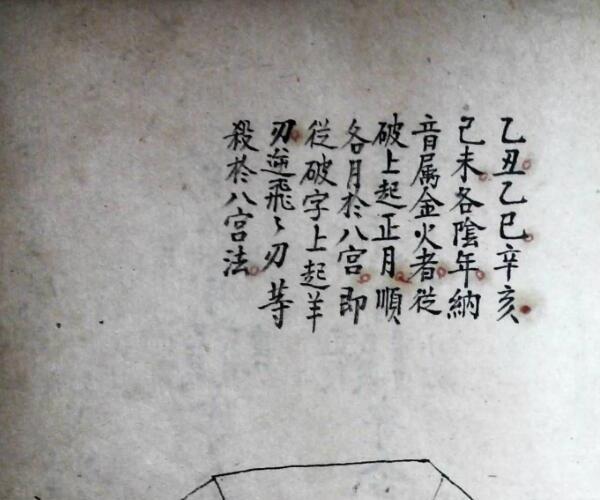 乙丑乙巳辛亥
己未各陰年納
音属金火者從
破上起正月順
各月於八宫即
從破字上起羊
刃逆飛〻刃等
殺於八宫法